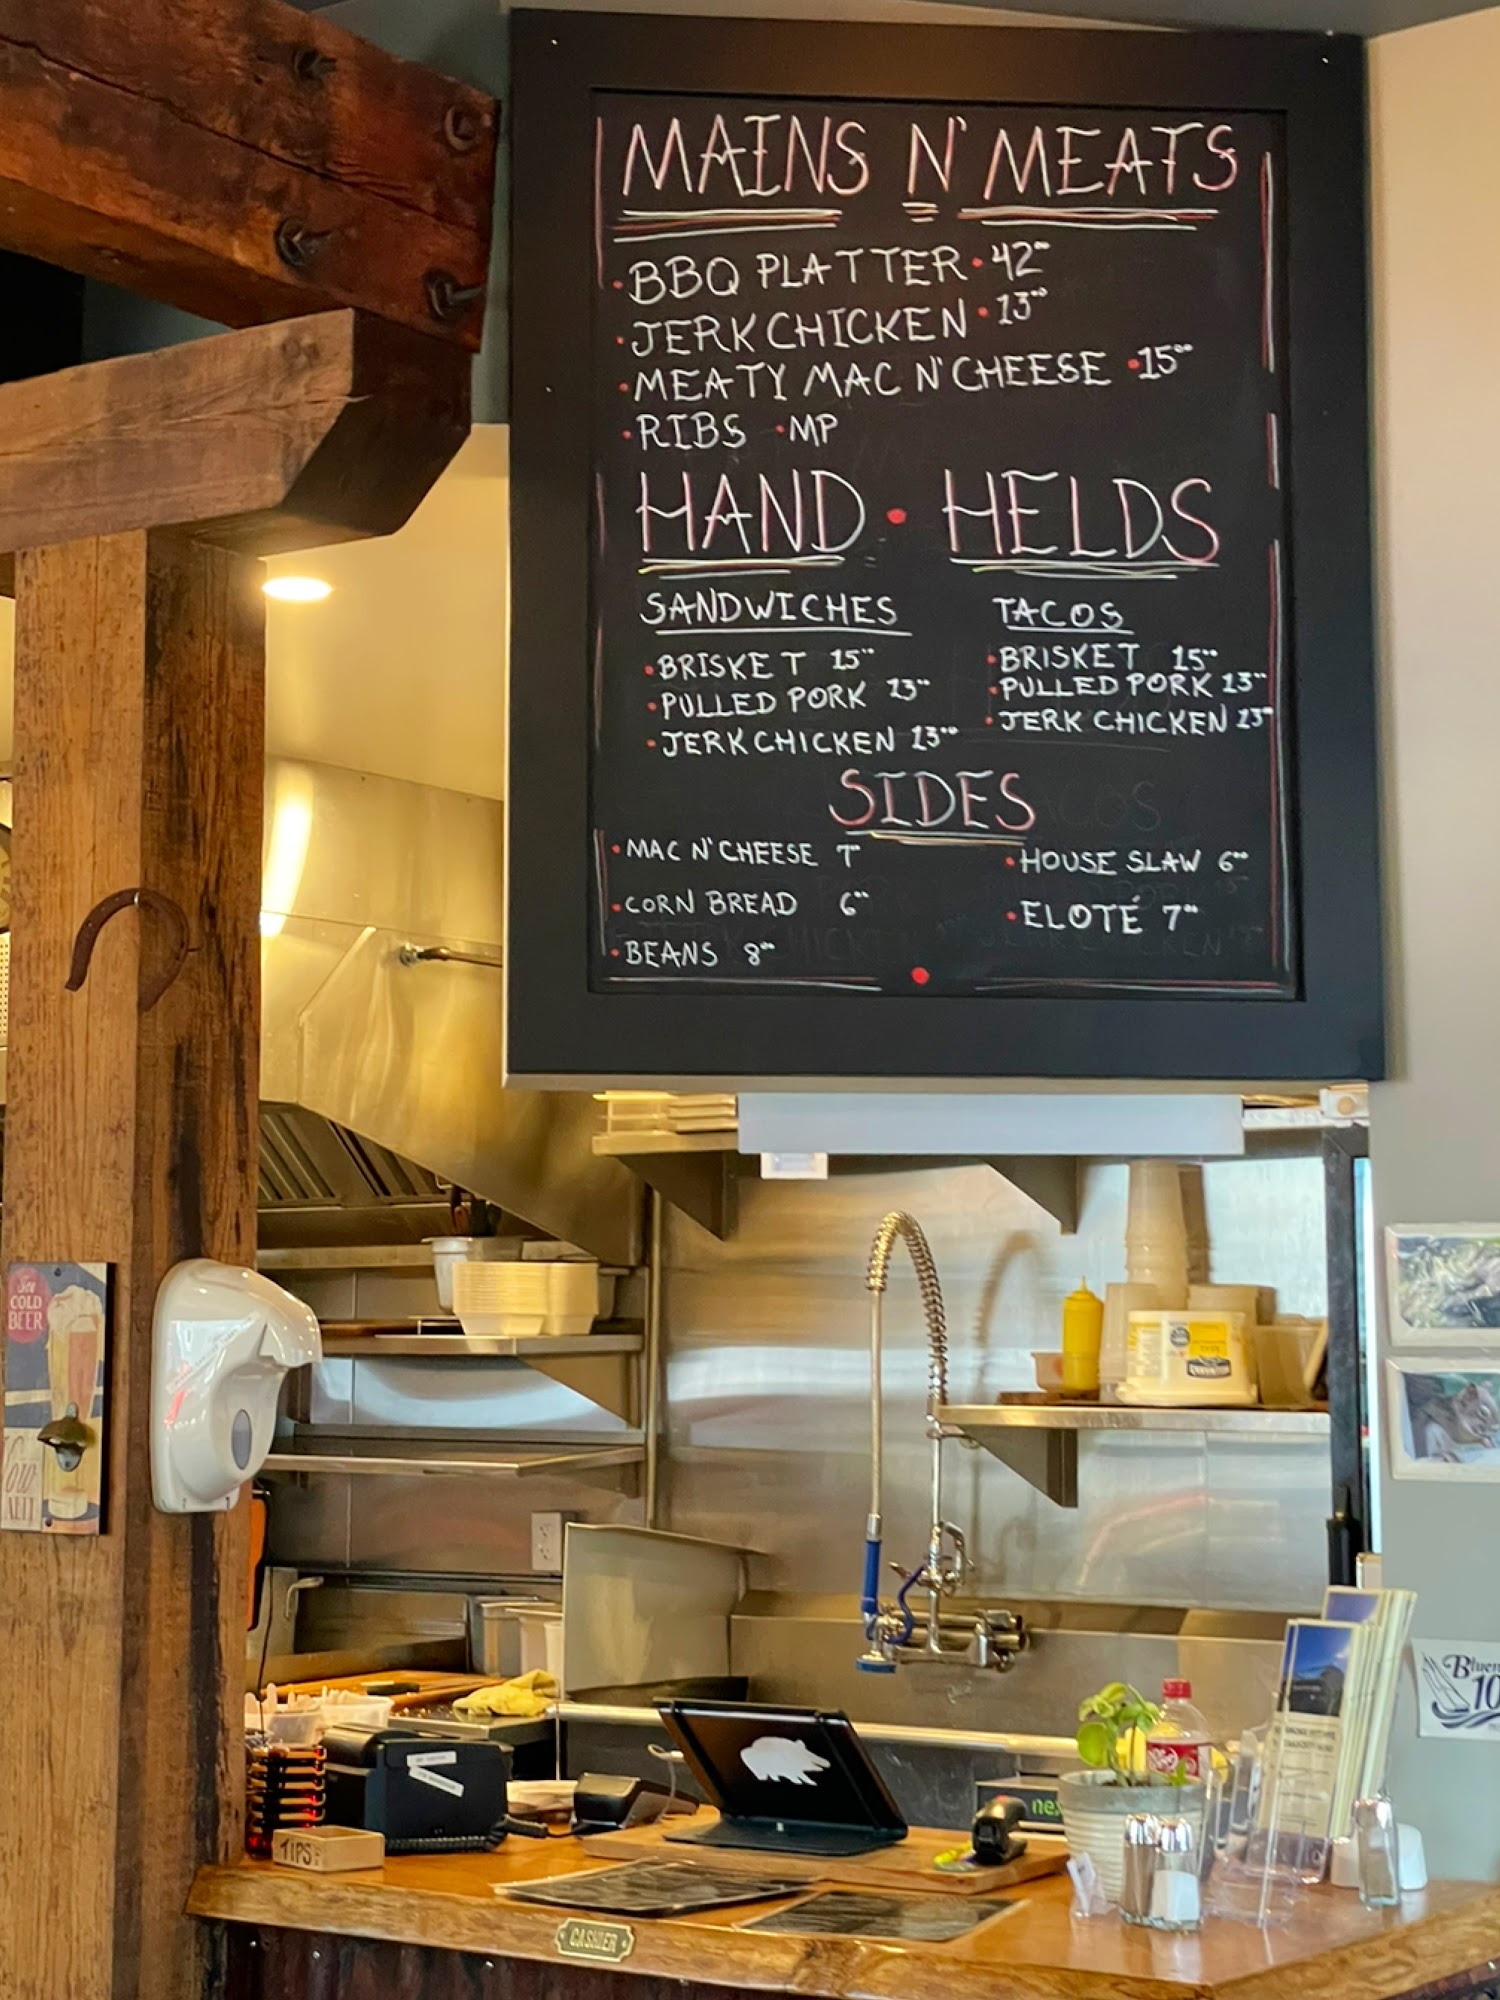 MAINS N' MEATS
• BBQ PLATTER • 42⁰⁰
• JERK CHICKEN • 13⁰⁰
• MEATY MAC N' CHEESE • 15⁰⁰
• RIBS • MP
HAND • HELDS
SANDWICHES
• BRISKET 15⁰⁰
• PULLED PORK 13⁰⁰
• JERK CHICKEN 13⁰⁰
TACOS
• BRISKET 15⁰⁰
• PULLED PORK 13⁰⁰
• JERK CHICKEN 13⁰⁰
SIDES
• MAC N' CHEESE 7⁰⁰
• CORN BREAD 6⁰⁰
• BEANS 8⁰⁰
• HOUSE SLAW 6⁰⁰
• ELOTÉ 7⁰⁰
COLD
BEER
TIPS
CASHIER